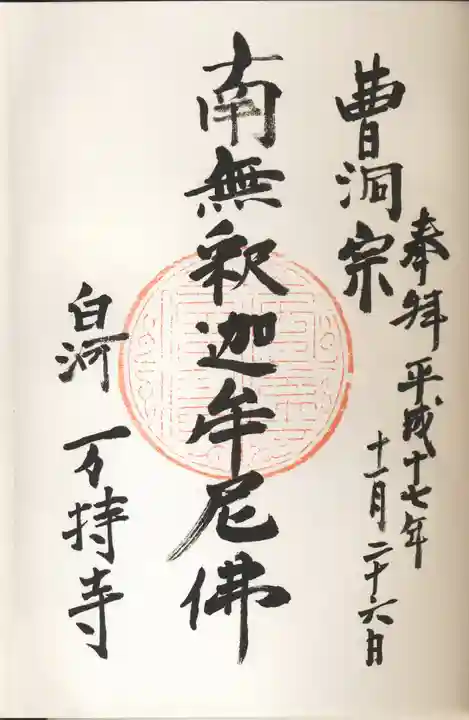 曹洞宗
奉拝 平成十七年
十一月二十六日
南無釈迦牟尼佛
白河 万持寺